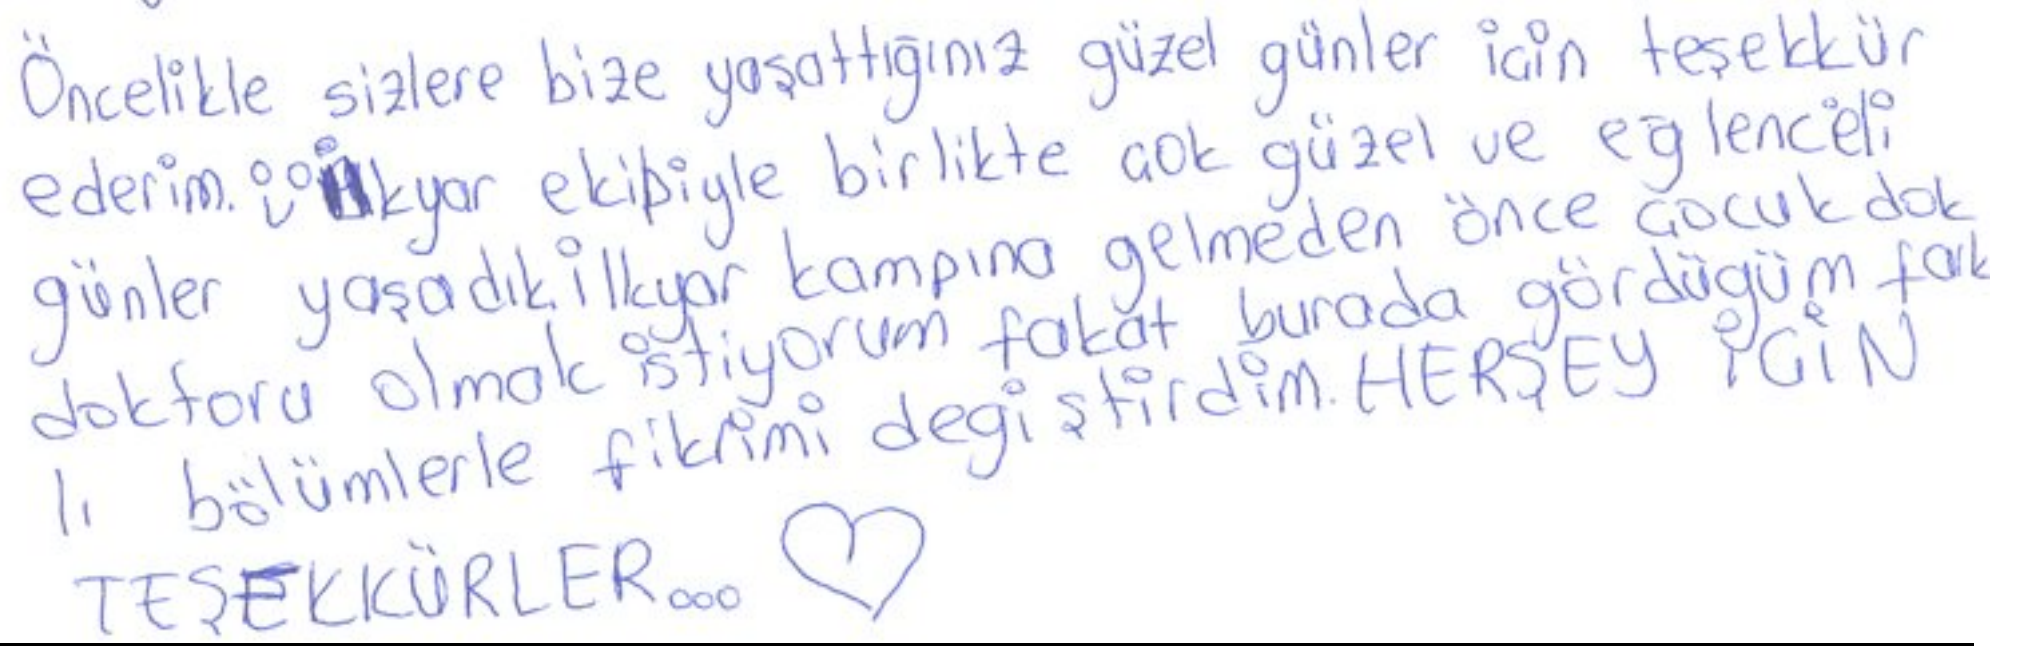 Öncelikle sizlere bize yaşattığınız güzel günler için teşekkür
ederim. İlkyar ekibiyle birlikte çok güzel ve eğlenceli
günler yaşadık. İlkyar kampına gelmeden önce çocuk dok
doktoru olmak istiyorum fakat burada gördügüm fark
lı bölümlerle fikrimi degiştirdim. HERŞEY İÇİN
TEŞEKKÜRLER...